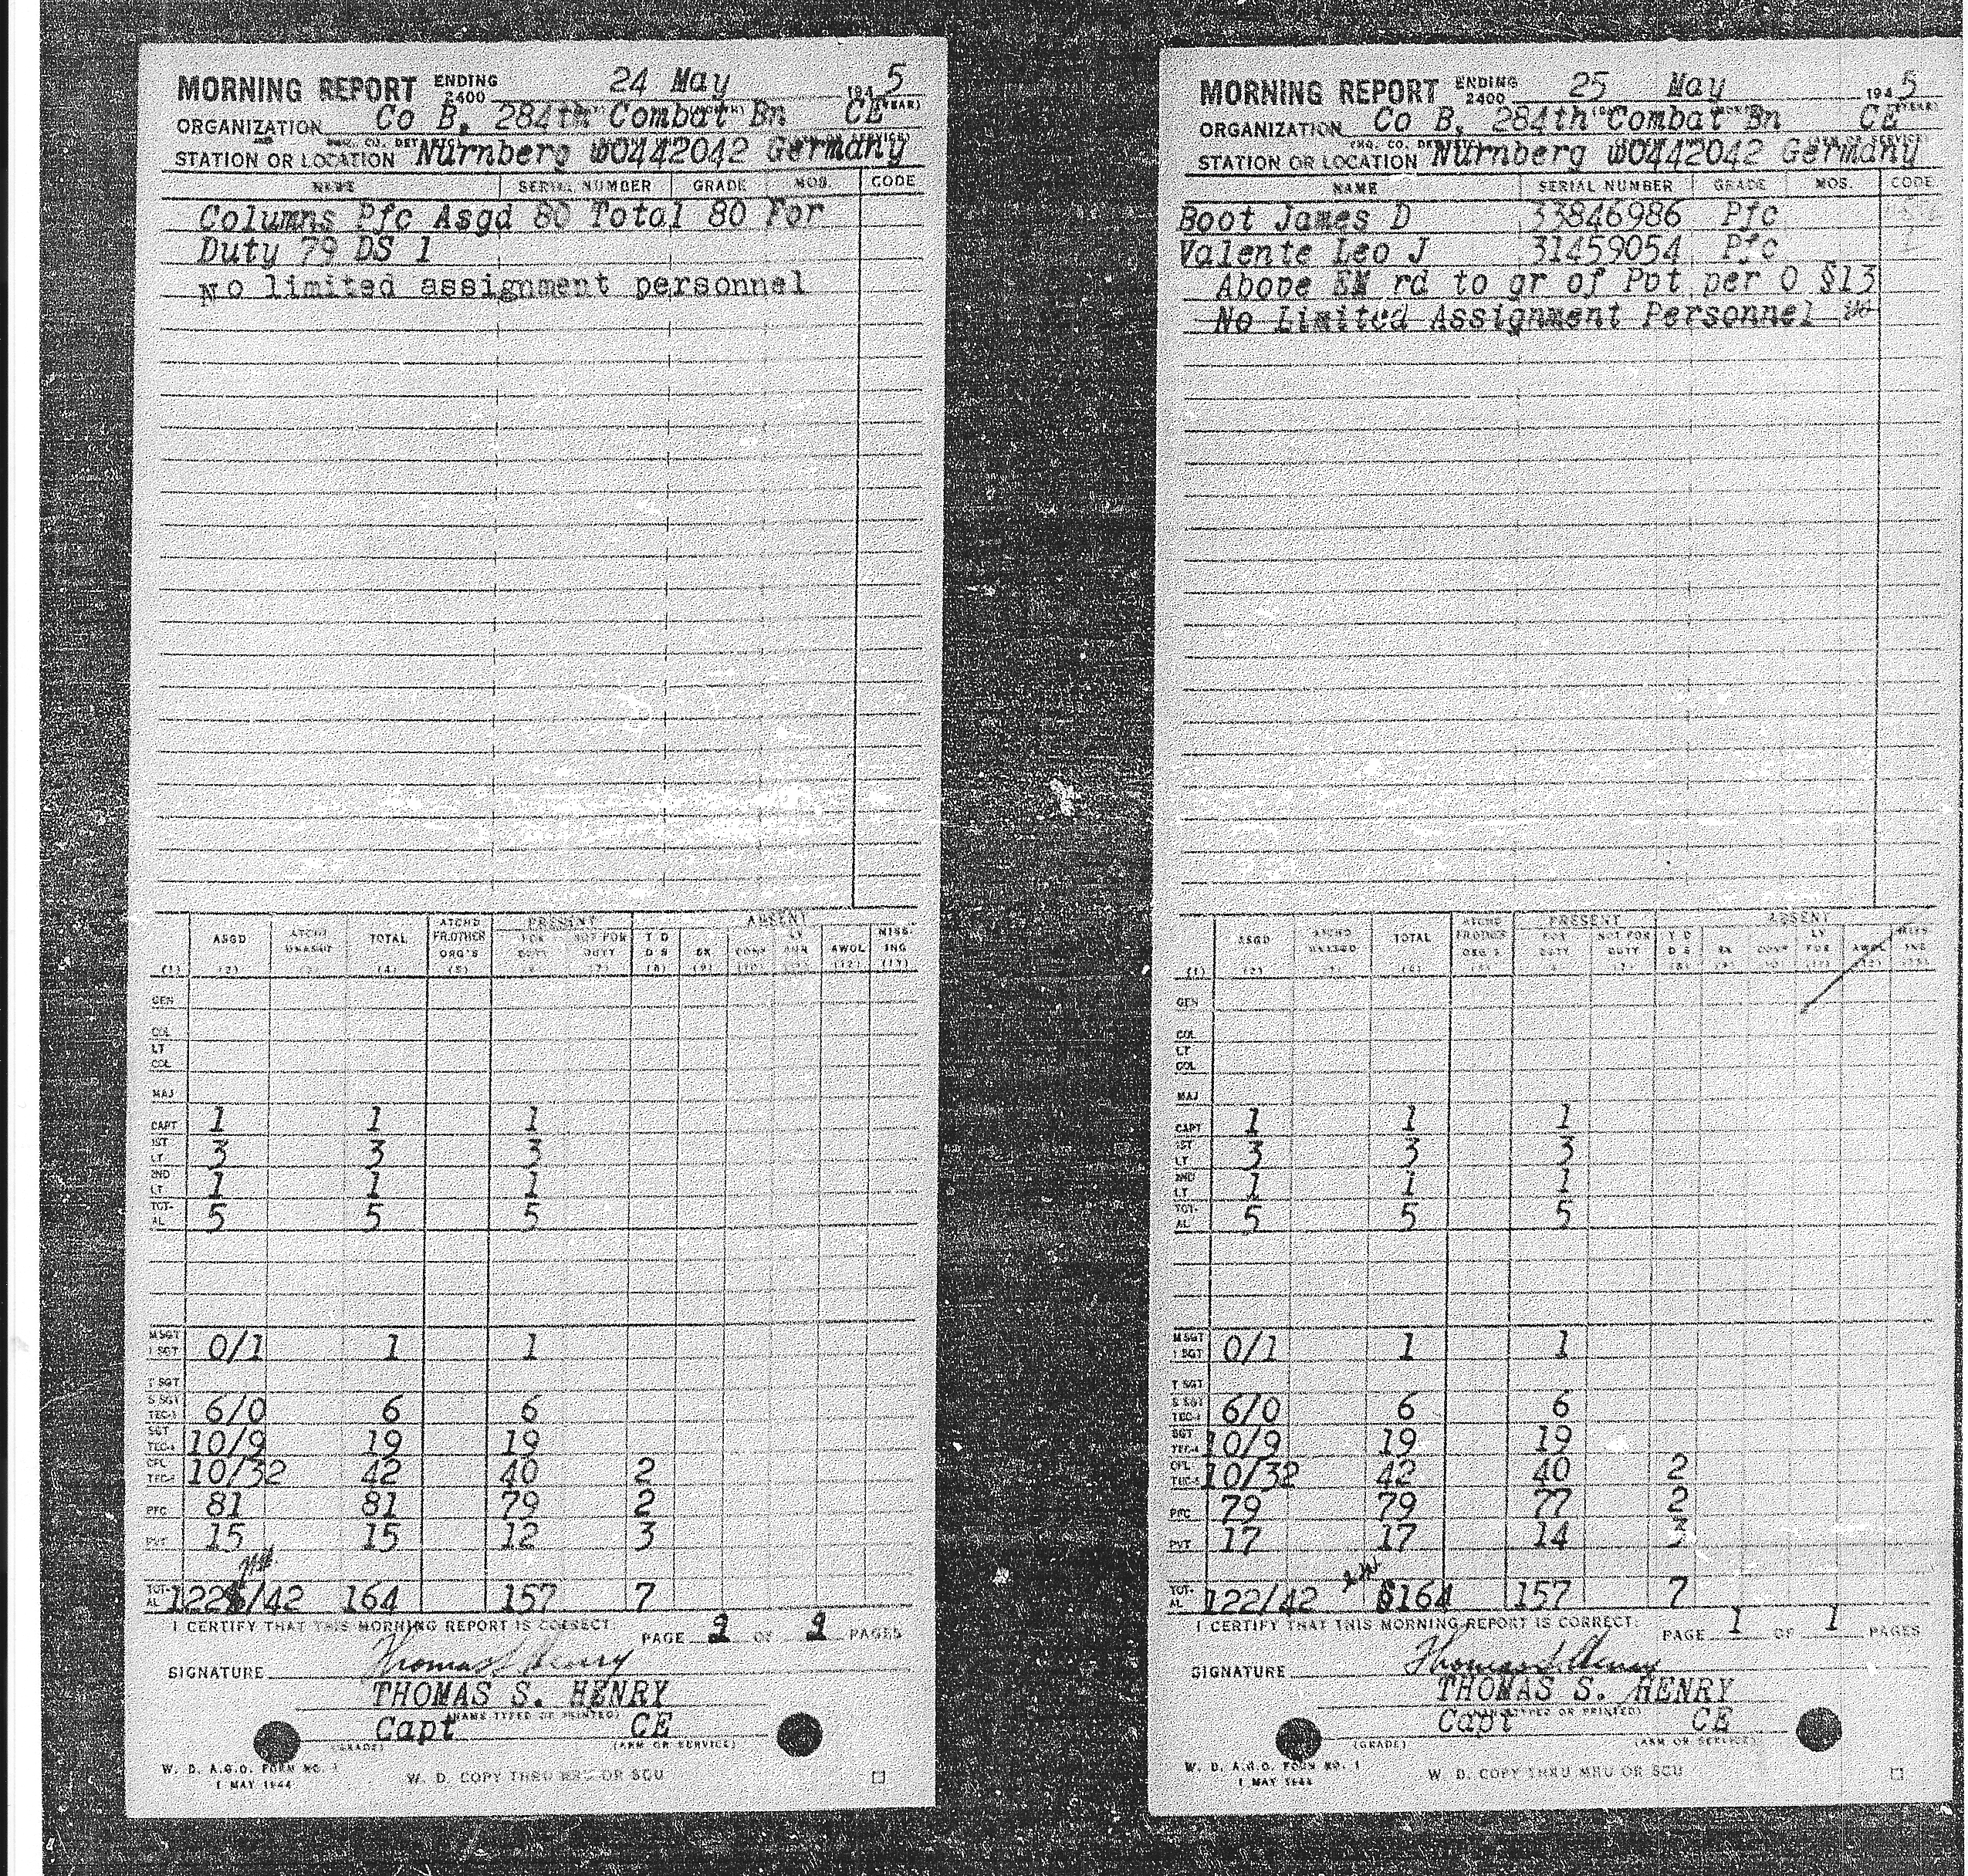 MORNING REPORT ENDING 2400 24 May 1945
ORGANIZATION Co B, 284th Combat Bn CE
STATION OR LOCATION Nurnberg WO442042 Germany
NAME SERIAL NUMBER GRADE MOS. CODE
Columns Pfc Asgd 80 Total 80 For
Duty 79 DS 1
No limited assignment personnel
ATCHD PRESENT ABSENT
ASGD ATCHD UNASGD TOTAL FR OTHER ORG'S FOR DUTY NOT FOR DUTY T D D S SK CONF LV FUR AWOL MISS- ING
(1) (2) (3) (4) (5) (6) (7) (8) (9) (10) (11) (12) (13)
GEN
COL
LT COL
MAJ
CAPT 1 1 1
1ST LT 3 3 3
2ND LT 1 1 1
TOT- AL 5 5 5
M SGT 1 SGT 0/1 1 1
T SGT
S SGT TEC-3 6/0 6 6
SGT TEC-4 10/9 19 19
CPL TEC-5 10/32 42 40 2
PFC 81 81 79 2
PVT 15 15 12 3
TOT- AL 122/42 164 157 7
I CERTIFY THAT THIS MORNING REPORT IS CORRECT. PAGE 2 OF 2 PAGES
SIGNATURE Thomas S. Henry
THOMAS S. HENRY
(NAME TYPED OR PRINTED)
Capt CE
(GRADE) (ARM OR SERVICE)
W. D. A.G.O. FORM NO. 1
1 MAY 1944 W. D. COPY THRU MRU OR SCU
MORNING REPORT ENDING 2400 25 May 1945
ORGANIZATION Co B, 284th Combat Bn CE
STATION OR LOCATION Nurnberg WO442042 Germany
NAME SERIAL NUMBER GRADE MOS. CODE
Boot James D 33846986 Pfc
Valente Leo J 31459054 Pfc
Above EM rd to gr of Pvt per O §13
No Limited Assignment Personnel
ATCHD PRESENT ABSENT
ASGD ATCHD UNASGD TOTAL FR OTHER ORG'S FOR DUTY NOT FOR DUTY T D D S SK CONF LV FUR AWOL MISS- ING
(1) (2) (3) (4) (5) (6) (7) (8) (9) (10) (11) (12) (13)
GEN
COL
LT COL
MAJ
CAPT 1 1 1
1ST LT 3 3 3
2ND LT 1 1 1
TOT- AL 5 5 5
M SGT 1 SGT 0/1 1 1
T SGT
S SGT TEC-3 6/0 6 6
SGT TEC-4 10/9 19 19
CPL TEC-5 10/32 42 40 2
PFC 79 79 77 2
PVT 17 17 14 3
TOT- AL 122/42 164 157 7
I CERTIFY THAT THIS MORNING REPORT IS CORRECT. PAGE 1 OF 1 PAGES
SIGNATURE Thomas S. Henry
THOMAS S. HENRY
(NAME TYPED OR PRINTED)
Capt CE
(GRADE) (ARM OR SERVICE)
W. D. A.G.O. FORM NO. 1
1 MAY 1944 W. D. COPY THRU MRU OR SCU